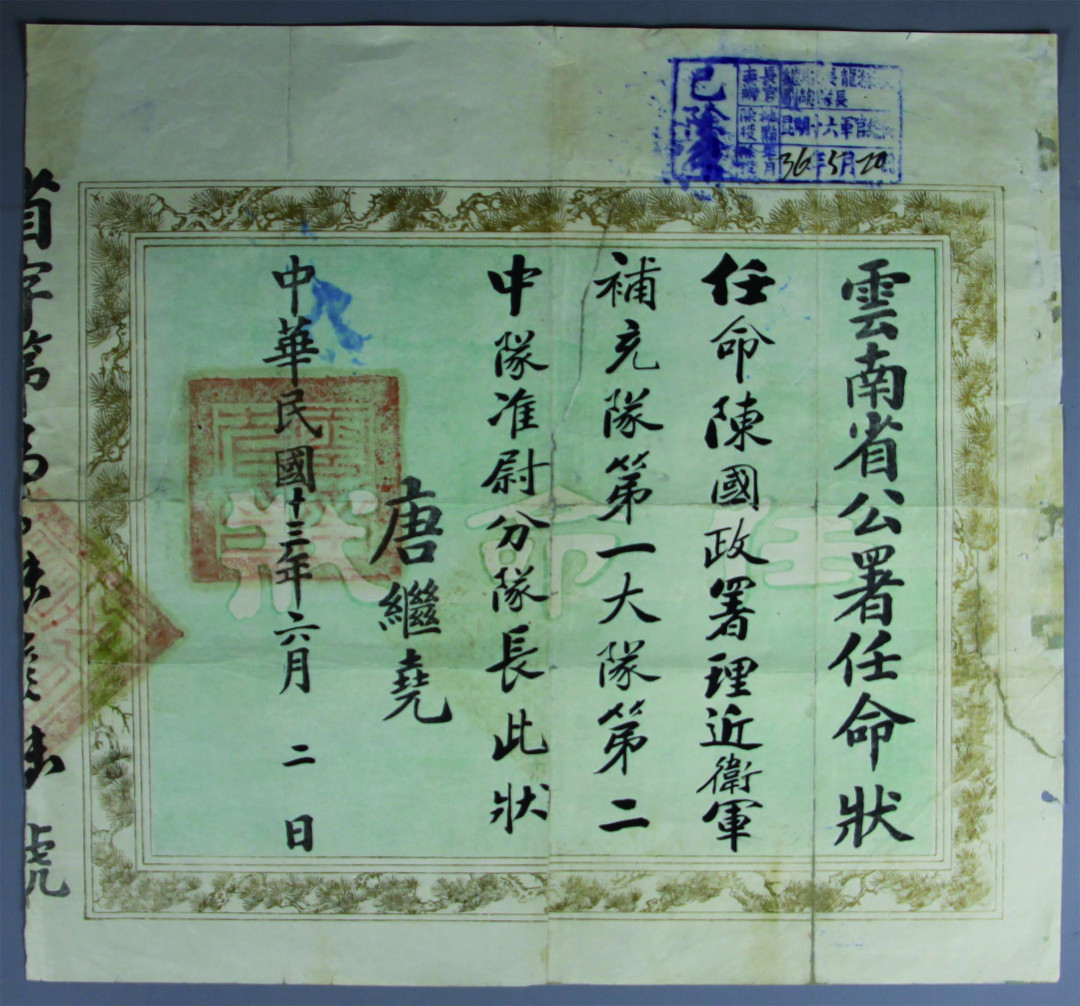 雲南省公署任命狀
任命陳國政署理近衛軍
補充隊第一大隊第二
中隊准尉分隊長此狀
唐繼堯
中華民國十三年六月二日
任命狀
省字第
號
已
長官
昆明十六軍官
36年5月20